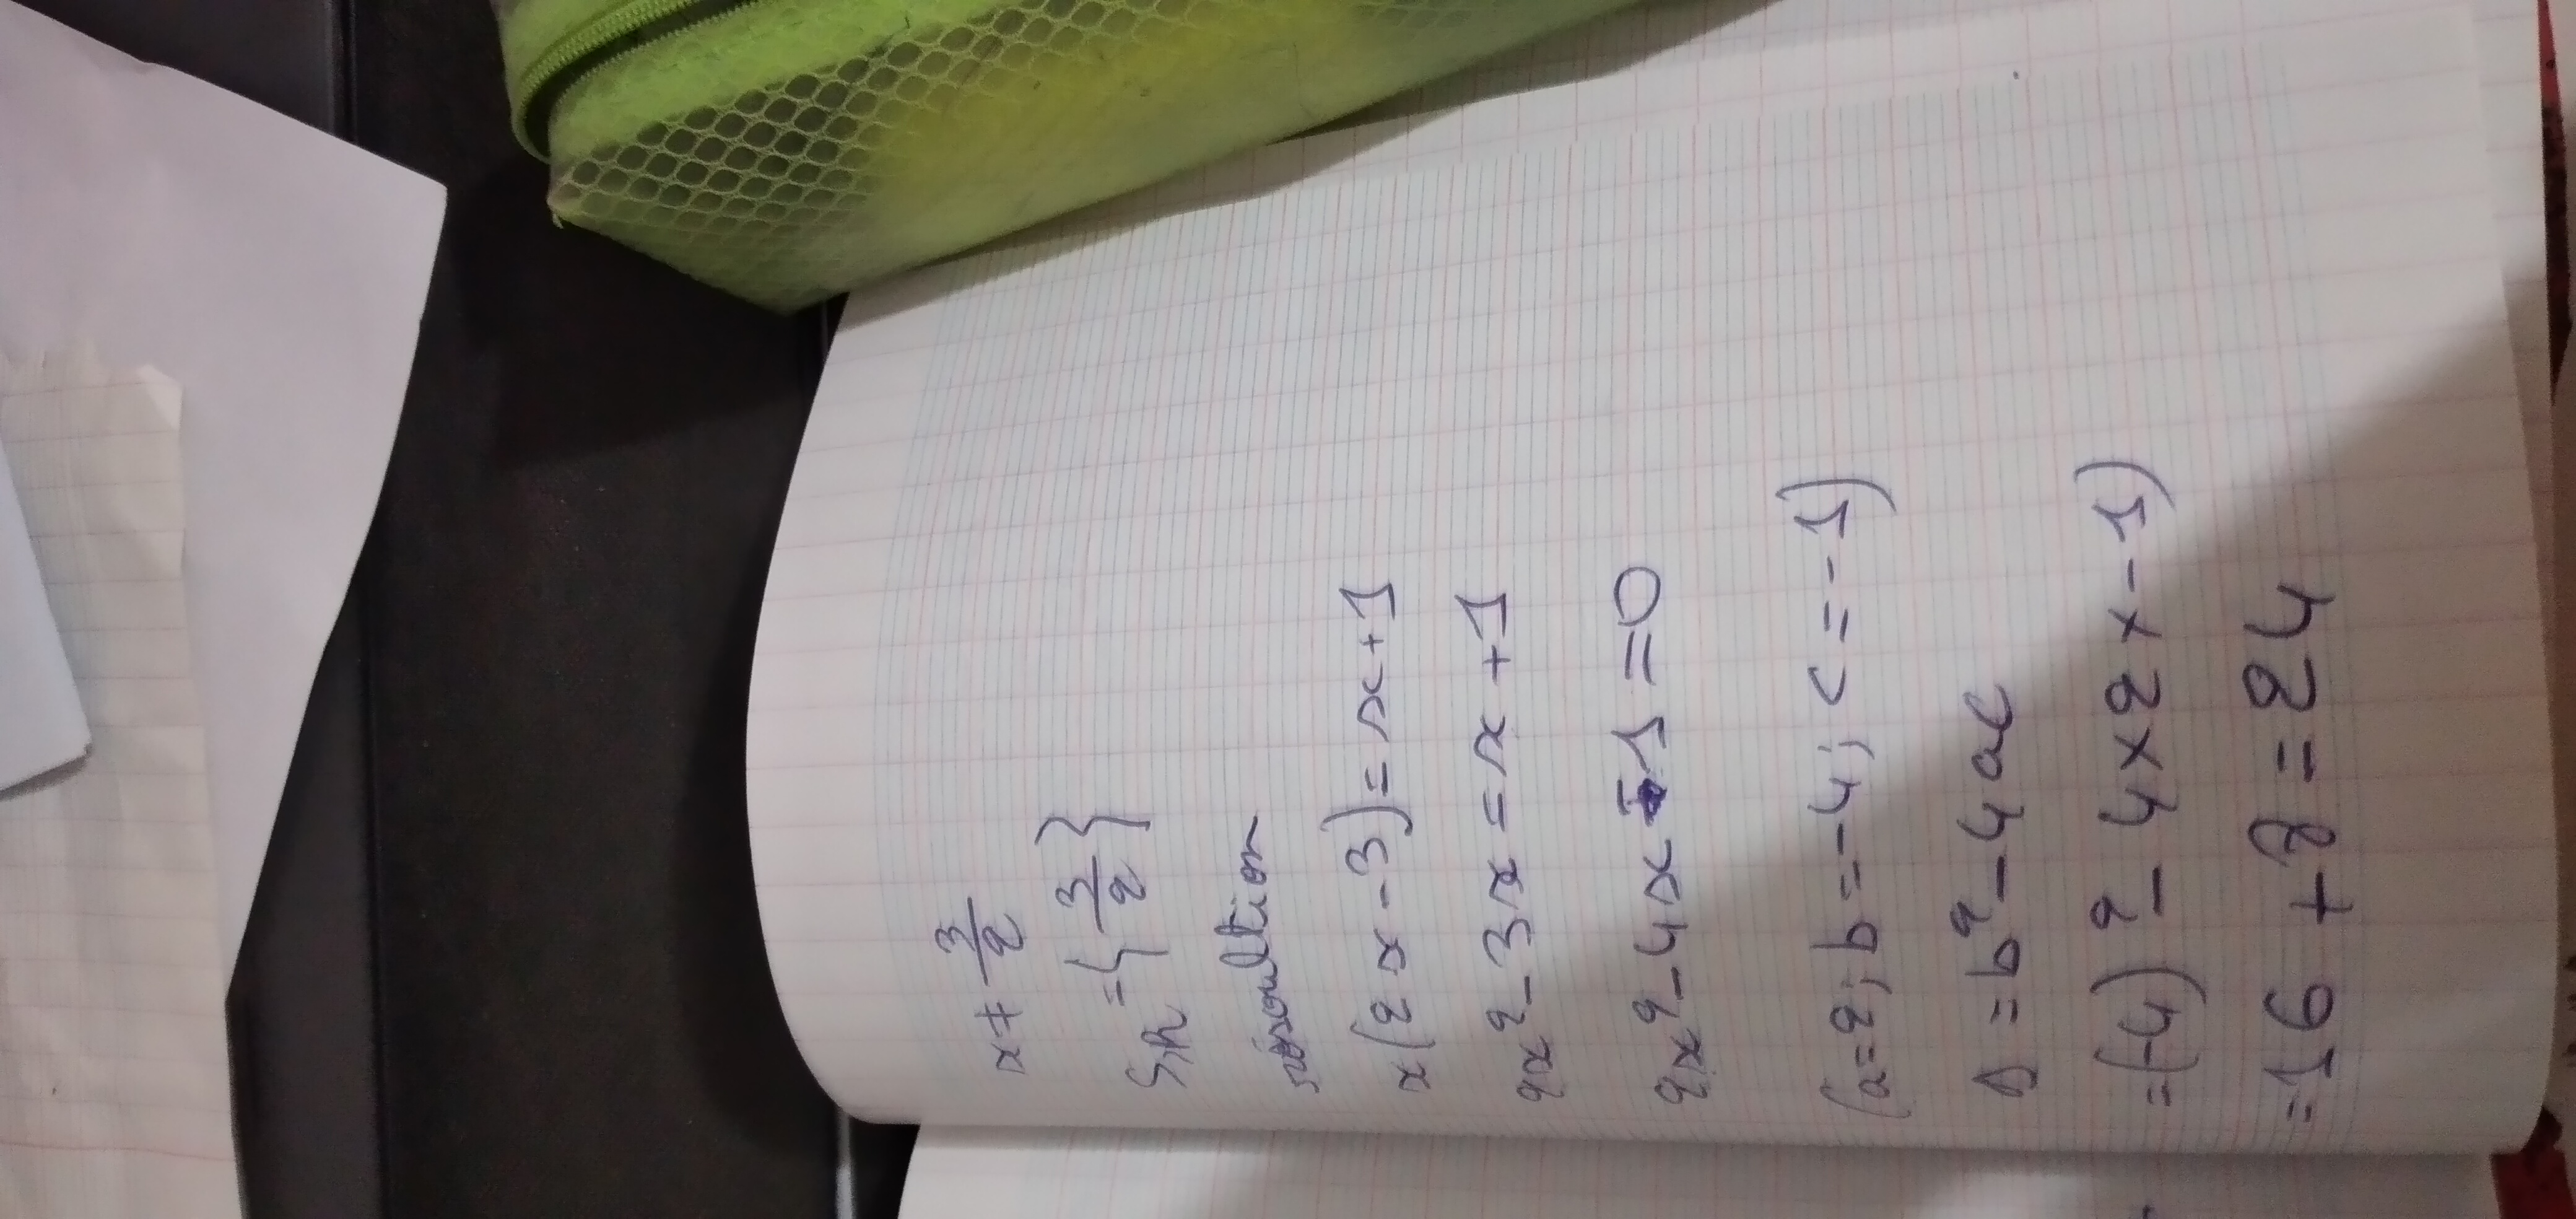 x ≠ 3/2
S_ℝ = {3/2}
résoultion
x(2x-3)=x+1
2x²-3x=x+1
2x²-4x-1=0
(a=2; b=-4; c=-1)
Δ=b²-4ac
=(-4)²-4×2×-1)
=16+8=24